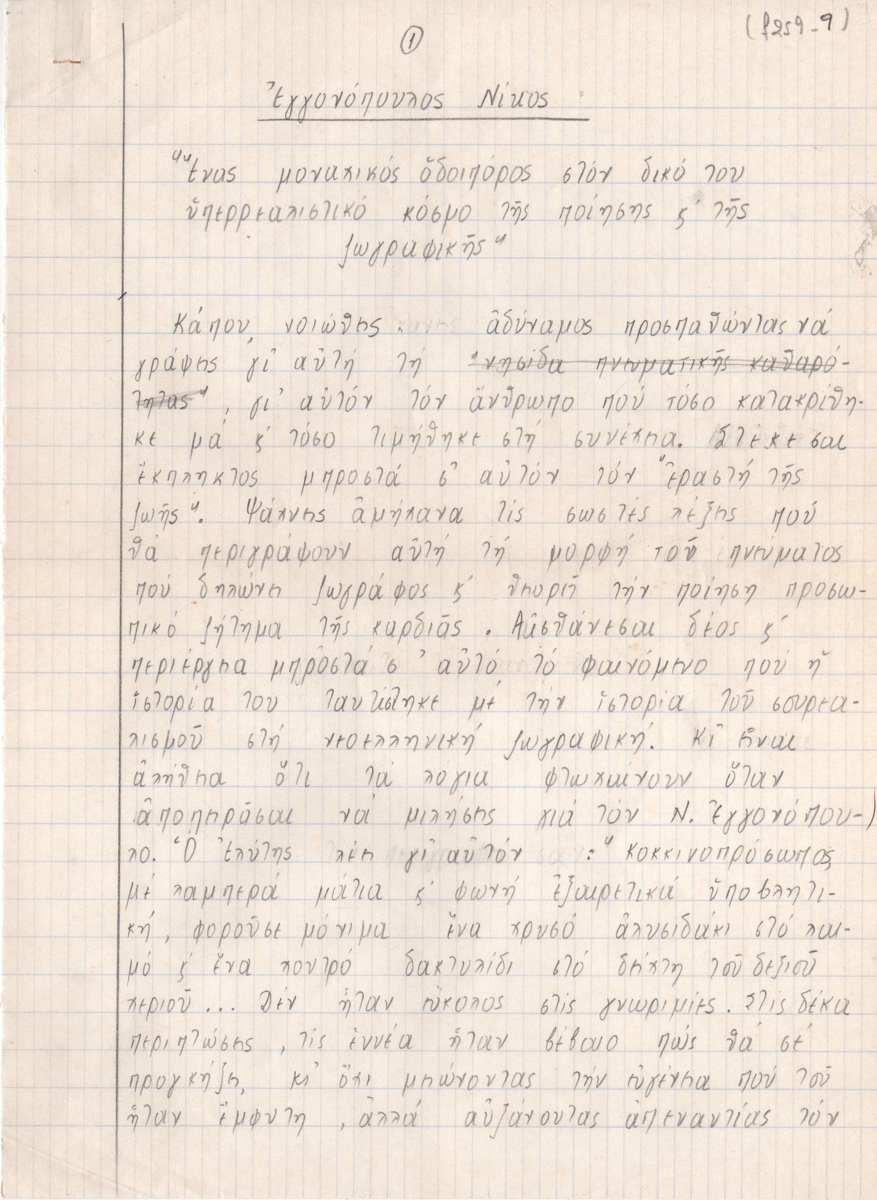 (f259-9)
1
Ἐγγονόπουλος Νίκος
"Ἕνας μοναχικός ὁδοιπόρος στόν δικό του
ὑπερρεαλιστικό κόσμο τῆς ποίησης κ' τῆς
ζωγραφικῆς"
Κάπου, νοιώθεις ἀδύναμος προσπαθώντας νά
γράψεις γι' αὐτή τή "νησίδα πνευματικῆς καθαρό-
τητας", γι' αὐτόν τόν ἄνθρωπο πού τόσο κατακρίθη-
κε μά κ' τόσο τιμήθηκε στή συνέχεια. Στέκεσαι
ἔκπληκτος μπροστά σ' αὐτόν τόν "ἐραστή τῆς
ζωῆς". Ψάχνεις ἀμήχανα τίς σωστές λέξεις πού
θά περιγράψουν αὐτή τή μορφή τοῦ πνεύματος
πού δηλώνει ζωγράφος κ' θεωρεῖ τήν ποίηση προσω-
πικό ζήτημα τῆς καρδιᾶς. Αἰσθάνεσαι δέος κ'
περιέργεια μπροστά σ' αὐτό τό φαινόμενο πού ἡ
ἱστορία του ταυτίστηκε μέ τήν ἱστορία τοῦ σουρεα-
λισμοῦ στή νεοελληνική ζωγραφική. Κι' εἶναι
ἀλήθεια ὅτι τά λόγια φτωχαίνουν ὅταν
ἀποπειρᾶσαι νά μιλήσεις γιά τόν Ν. Ἐγγονόπου-
λο. Ὁ Ἐλύτης λέει γι' αὐτόν : "κοκκινοπρόσωπος
μέ λαμπερά μάτια κ' φωνή ἐξαιρετικά ὑποβλητι-
κή, φοροῦσε μόνιμα ἕνα χρυσό ἁλυσιδάκι στό λαι-
μό κ' ἕνα χοντρό δακτυλίδι στό δείχτη τοῦ δεξιοῦ
χεριοῦ... Δέν ἦταν εὔκολος στίς γνωριμίες. Στίς δέκα
περιπτώσεις, τίς ἐννέα ἦταν βέβαιο πώς θά σέ
προγκήξει, κι' ὄχι μειώνοντας τήν εὐγένεια πού τοῦ
ἦταν ἔμφυτη, ἀλλά αὐξάνοντας ἀπεναντίας τόν